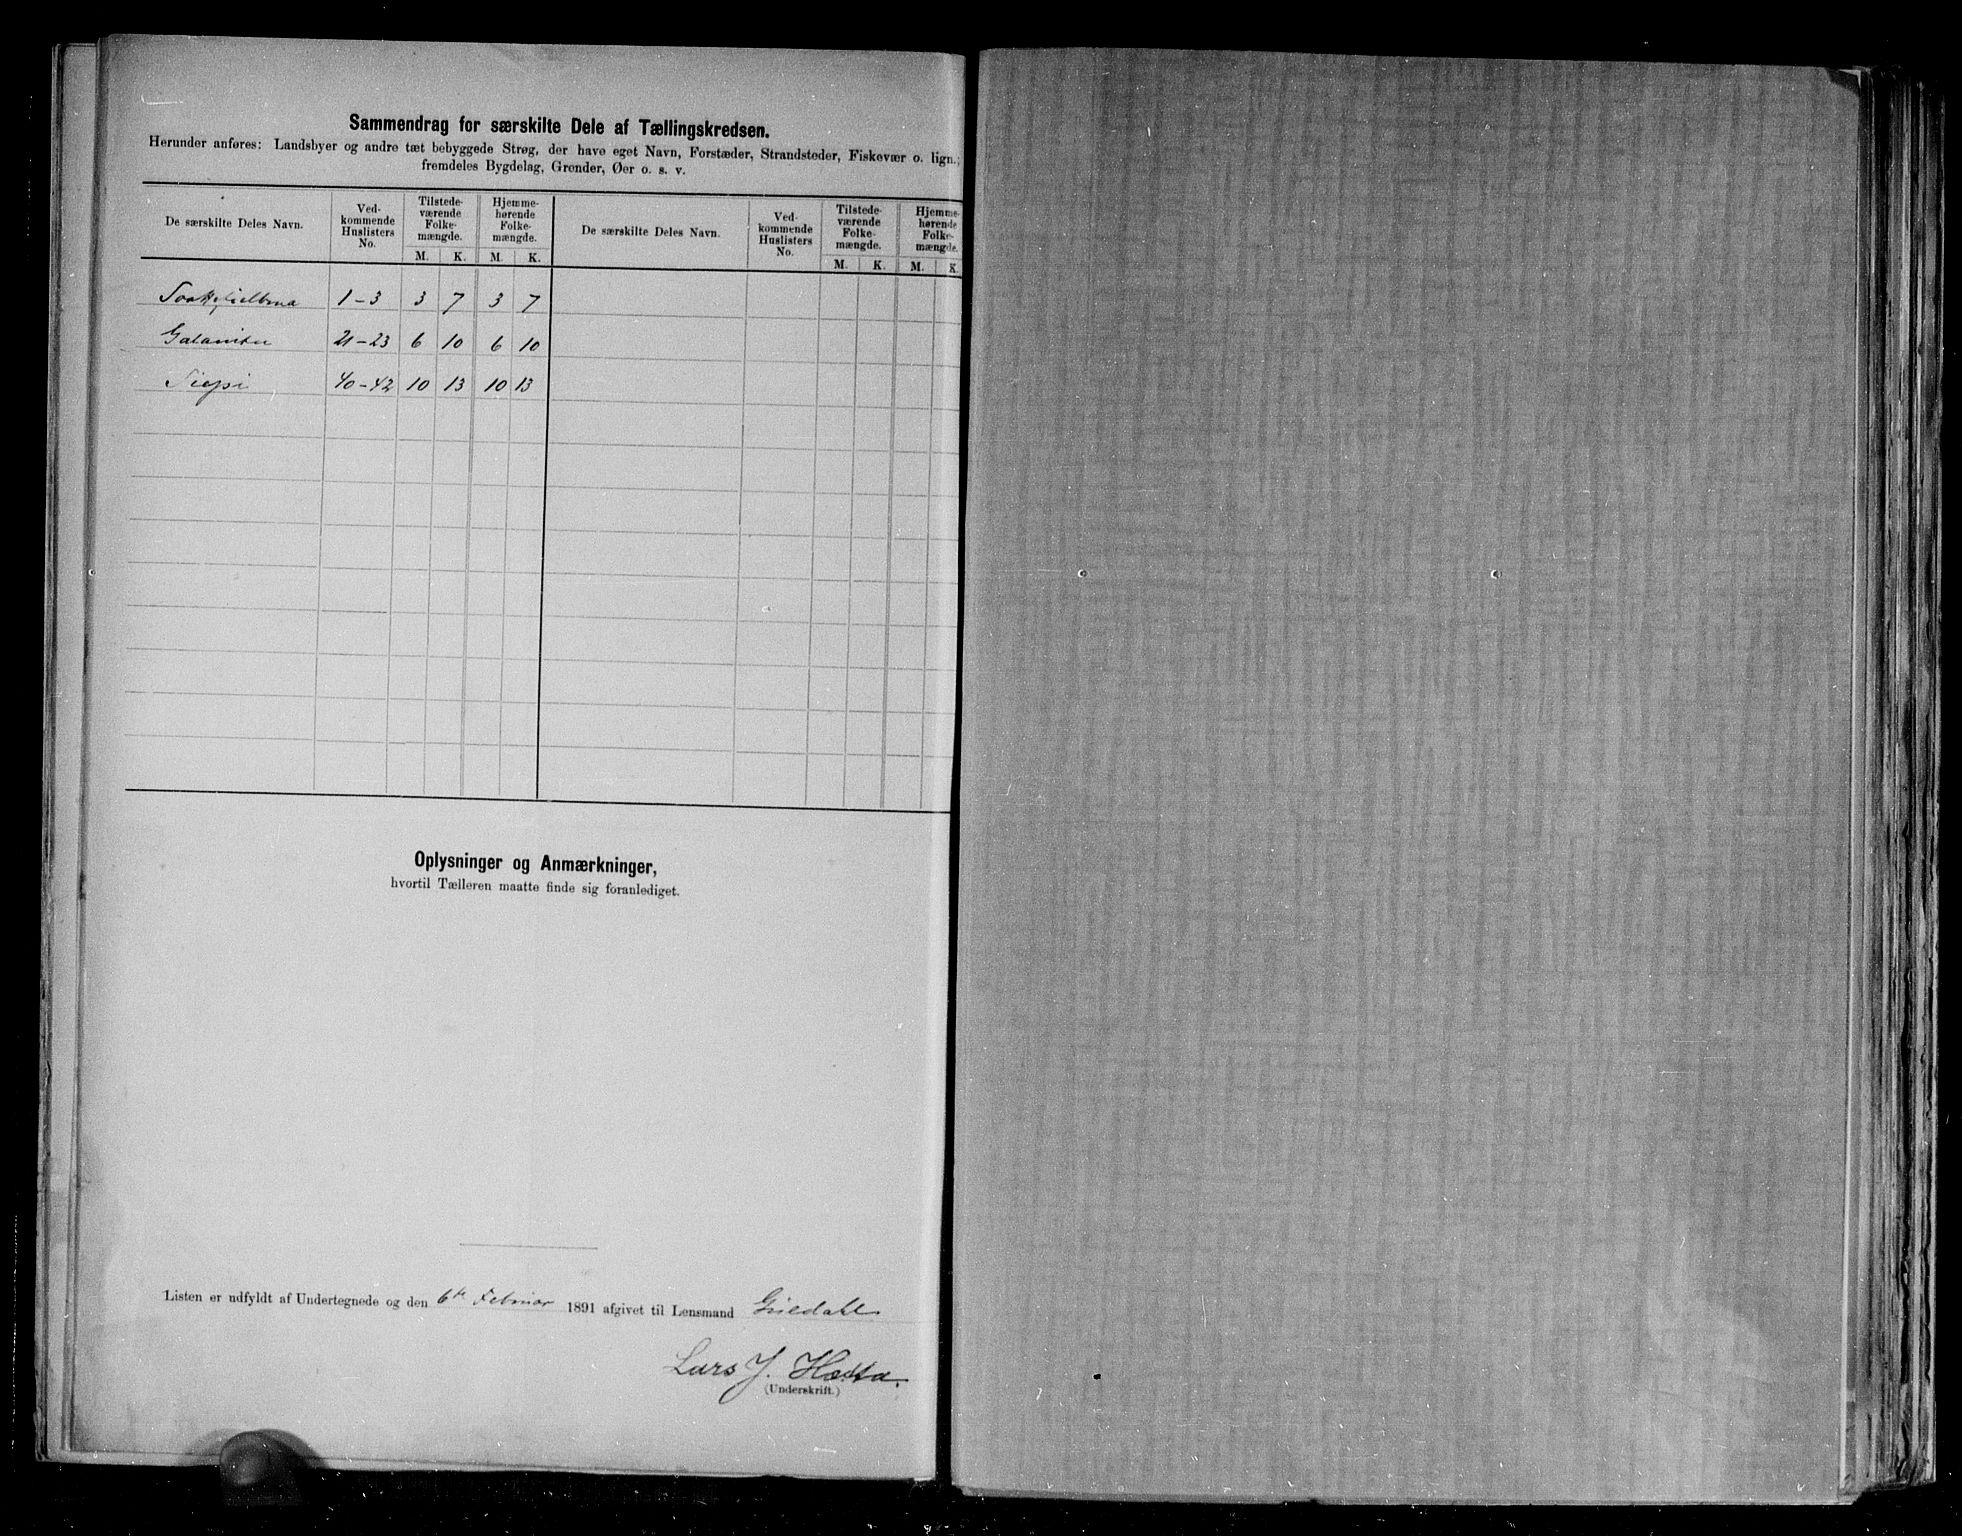 Sammendrag for særskilte Dele af Tællingskredsen.
Herunder anføres: Landsbyer og andre tæt bebyggede Strøg, der have eget Navn, Forstæder, Strandsteder, Fiskevær o. lign.;
fremdeles Bygdelag, Grender, Øer o. s. v.
De særskilte Deles Navn. Ved-kommende Huslisters No. Tilstede-værende Folke-mængde. Hjemme-hørende Folke-mængde. De særskilte Deles Navn. Ved-kommende Huslisters No. Tilstede-værende Folke-mængde. Hjemme-hørende Folke-mængde.
M. K. M. K. M. K. M. K.
1-3 3 7 3 7
Galanitu 21-23 6 10 6 10
Siepi 40-42 10 13 10 13
Oplysninger og Anmærkninger,
hvortil Tælleren maatte finde sig foranlediget.
Listen er udfyldt af Undertegnede og den 6te Februar 1891 afgivet til Lensmand
Lars J. Hætta.
(Underskrift.)